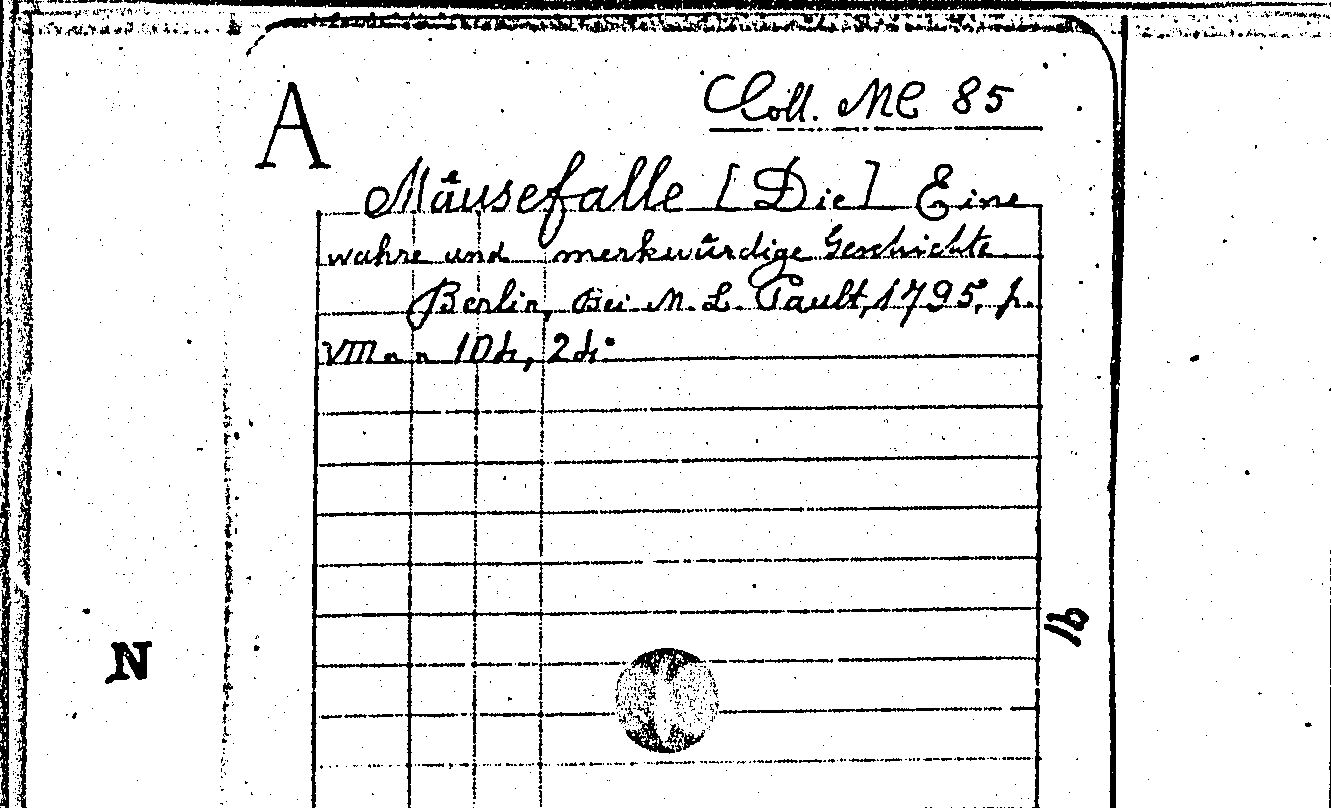 A
Coll. MC 85
Mäusefalle [Die] Eine
wahre und merkwürdige Geschichte
Berlin, Bei M. L. Pault, 1795, p.
VIII n n 104, 24º
N
16